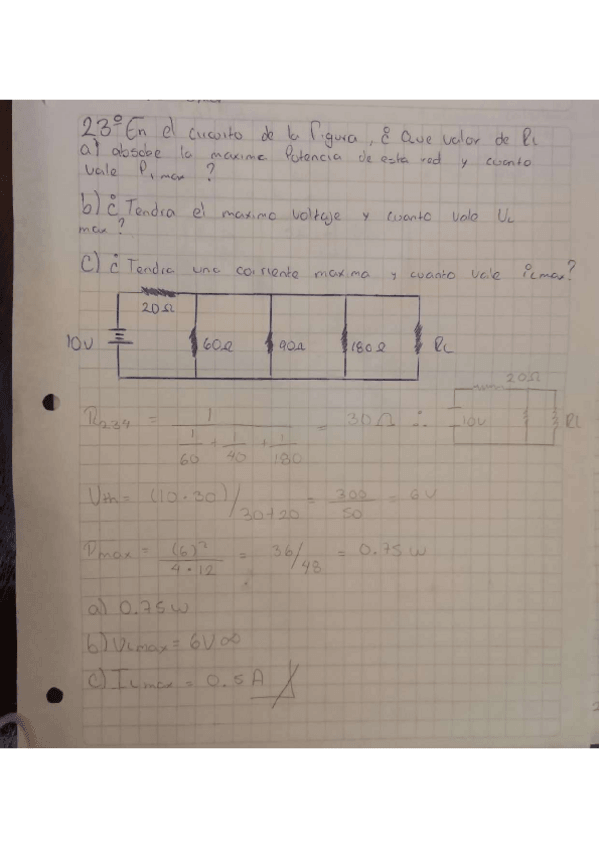 23° En el circuito de la figura, ¿ Que valor de RL
a) absobe la maxima Potencia de esta red y cuanto
vale P, max ?
b) ¿ Tendra el maximo voltaje y cuanto vale UL
max ?
c) ¿ Tendra una corriente maxima y cuanto vale iLmax?
20Ω
10V 60Ω 90Ω 180Ω RL
20Ω
R234 = 1 / 1/60 + 1/40 + 1/180 = 30Ω ∴ 10V RL
Uth = (10·30)/30+20 = 300/50 = 6V
Pmax = (6)²/4·12 = 36/48 = 0.75 W
a) 0.75 W
b) VLmax = 6V ∞
c) ILmax = 0.5 A